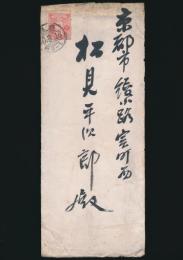 京都市綾小路室町西
松見平次郎殿